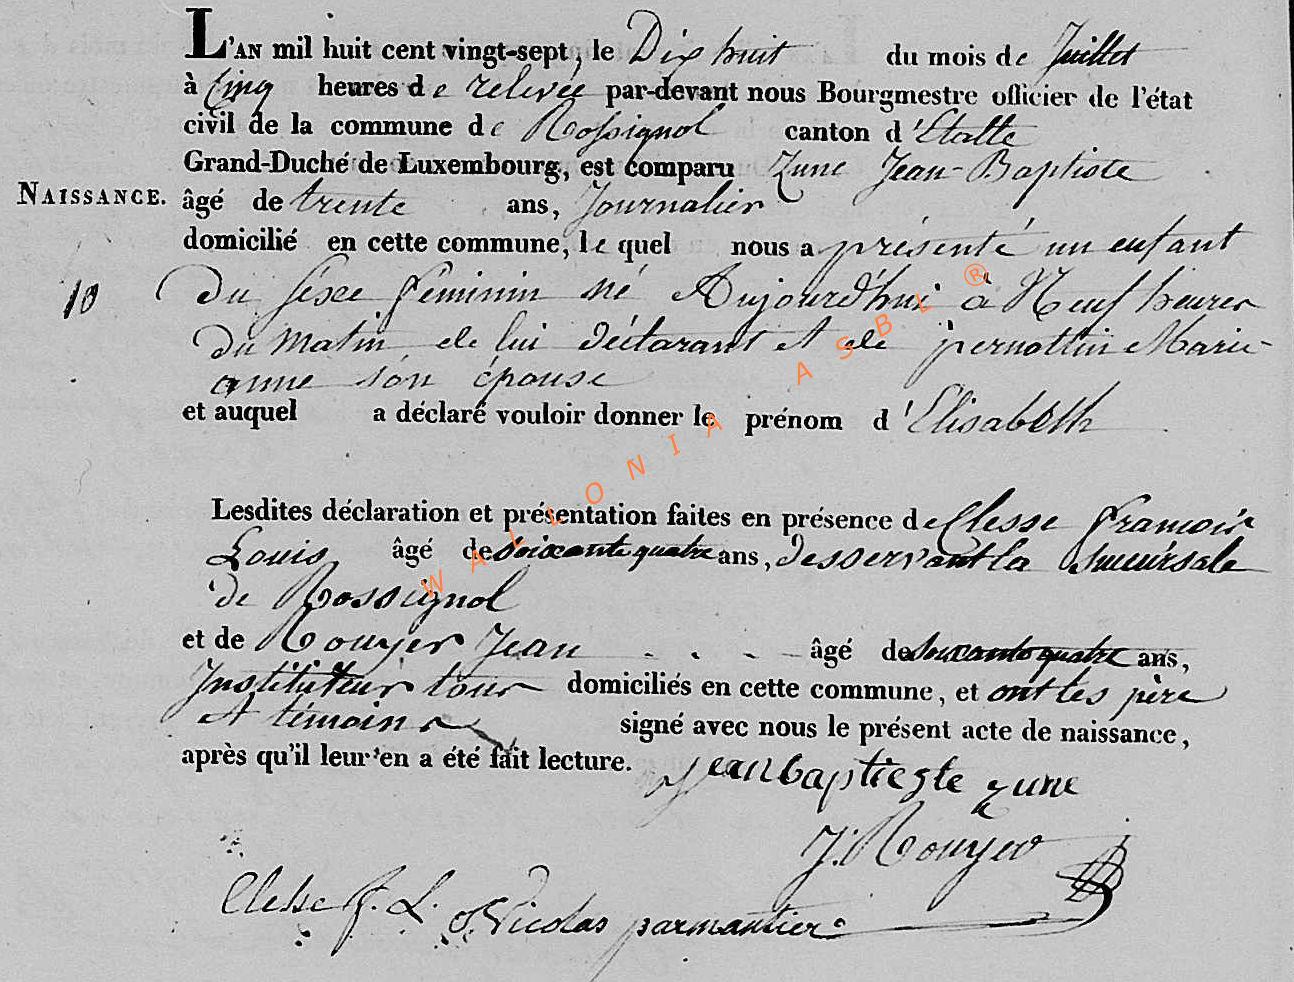 L'AN mil huit cent vingt-sept, le Dix huit du mois de Juillet
à Cinq heures de relevée par-devant nous Bourgmestre officier de l'état
civil de la commune de Rossignol canton d'Etalle
Grand-Duché de Luxembourg, est comparu Zune Jean-Baptiste
NAISSANCE. âgé de trente ans, Journalier
domicilié en cette commune, le quel nous a présenté un enfant
10 Du séxe féminin né Aujourd'hui à Neuf heures
du matin de lui déclarant et de pernottin Marie-
anne son épouse
et auquel a déclaré vouloir donner le prénom d'Elisabeth
Lesdites déclaration et présentation faites en présence de Clesse francois
Louis âgé de soixante quatre ans, desservant la succursale
de Rossignol
et de Rouyer Jean âgé de soixante quatre ans,
Instituteur tous domiciliés en cette commune, et ont les père
et témoins signé avec nous le présent acte de naissance,
après qu'il leur en a été fait lecture.
Jean baptieste zune
J. Rouyer
Clesse f. L. Nicolas parmantier
WALLONIA ASBL ®